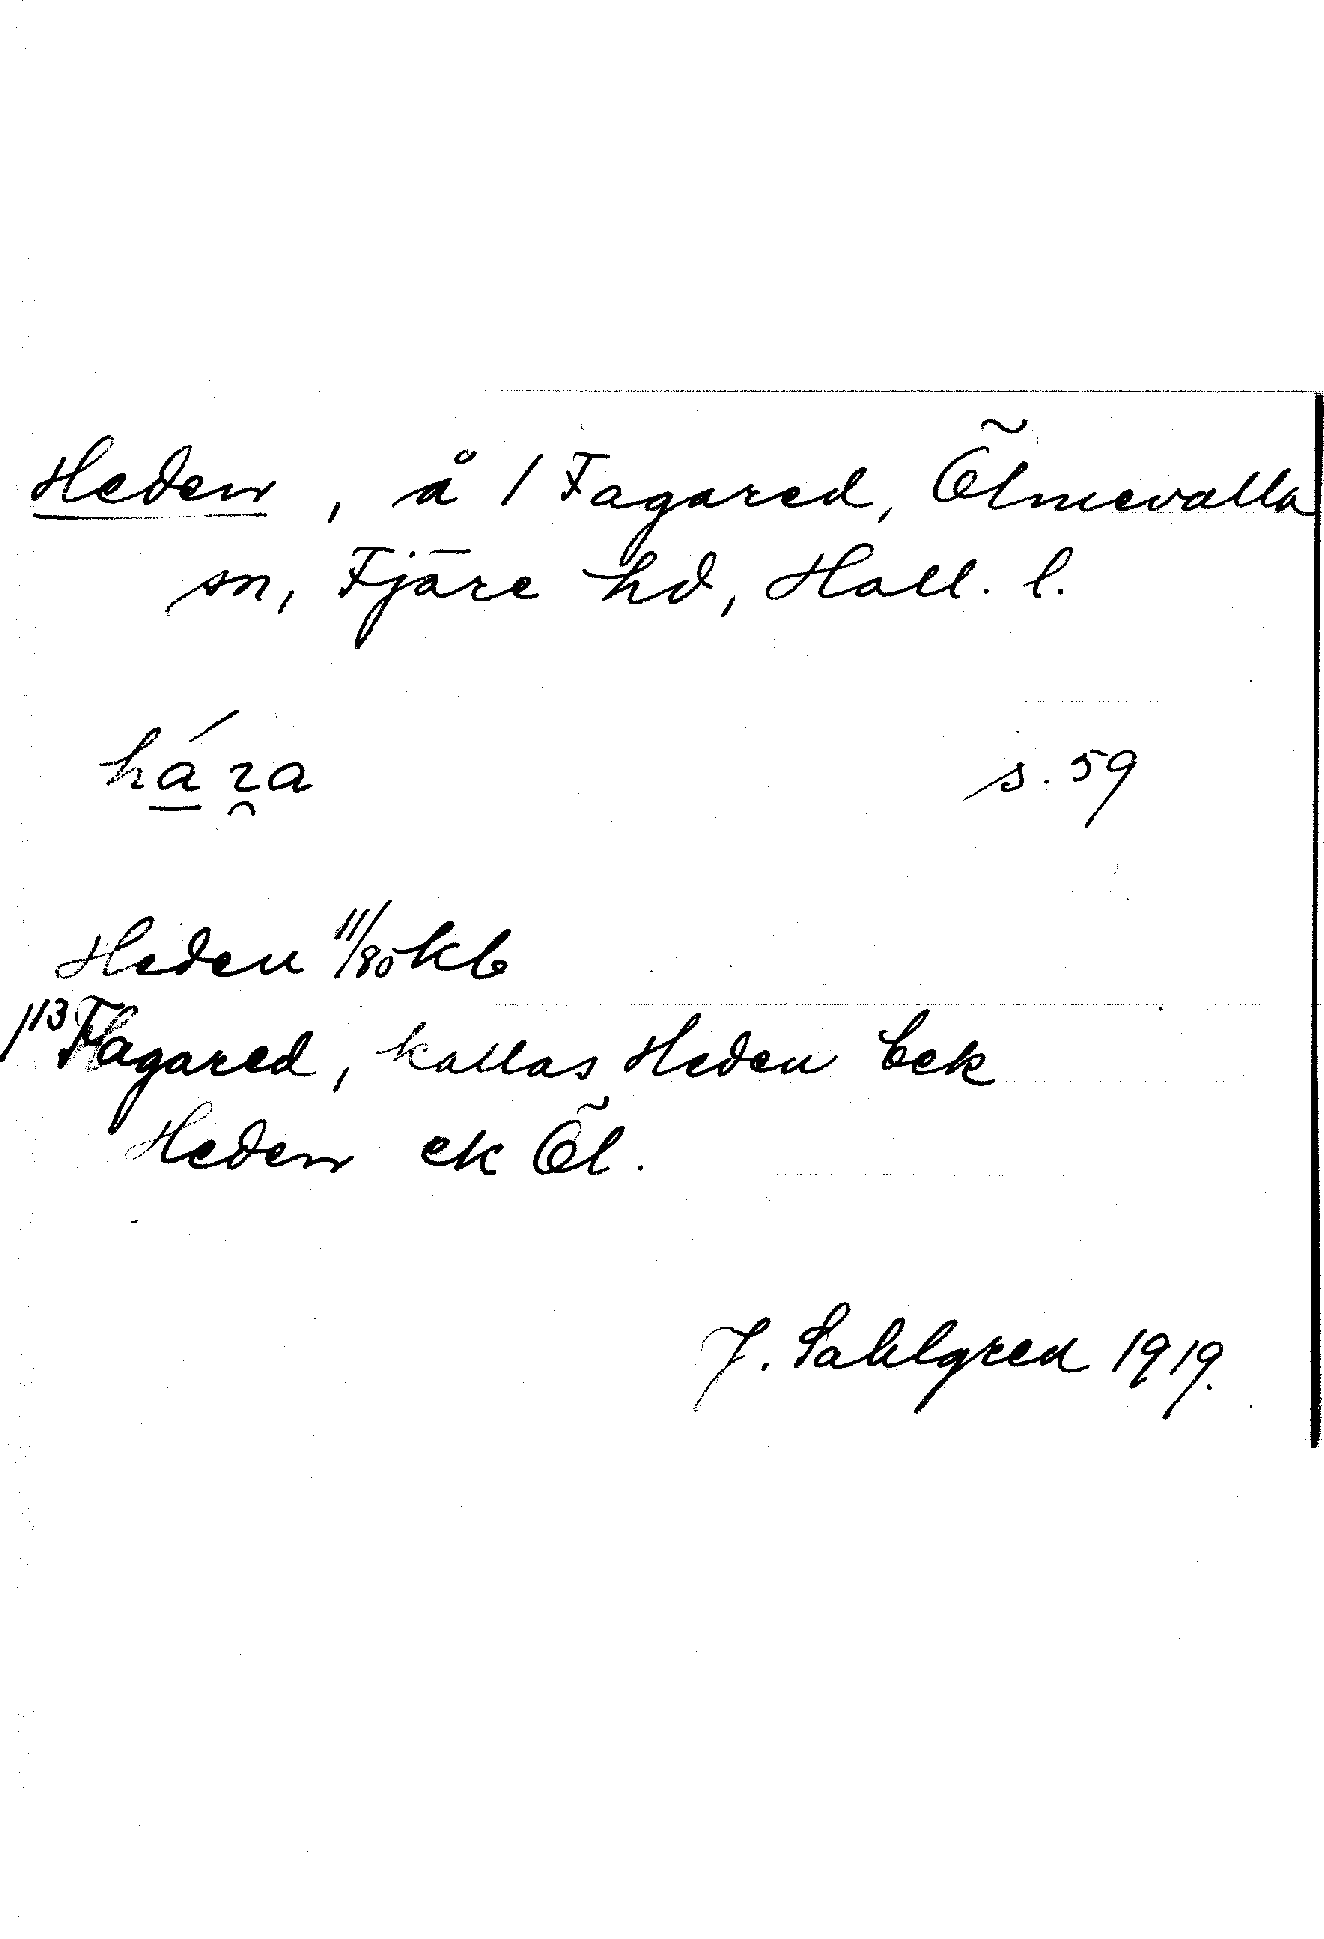 Heden, å 1 Fagared, Ölmevalla
sn, Fjäre hd, Hall. l.
hára s. 59
Heden 11/80 kb
113 Fagared, kallas Heden bek
Heden ek Öl.
J. Sahlgren 1919.